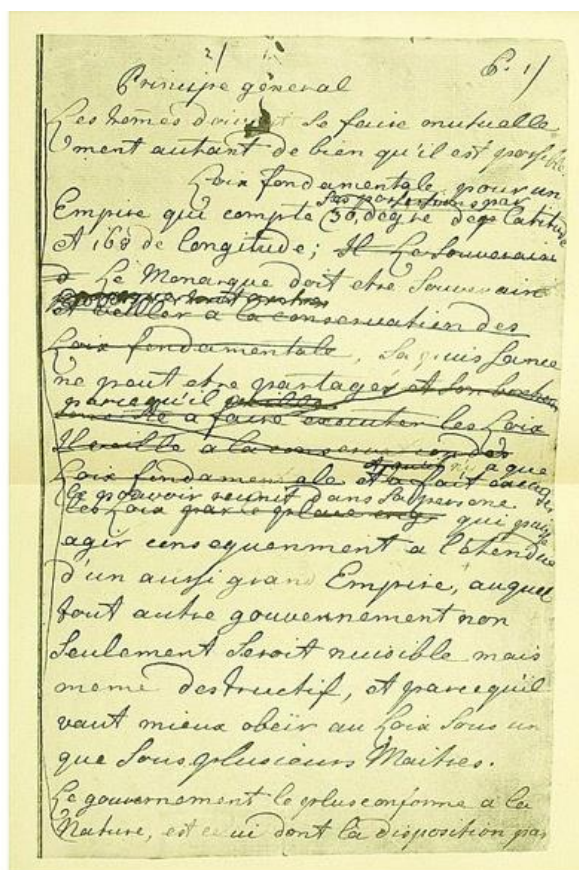 2/ P. 1/
Principe général
Les homes doivent se faire mutuelle
ment autant de bien qu'il est possible.
Loix fondamentale pour un
ses possessions par
Empire qui compte 30, degre de latitude
et 168 de longitude; Il Le Souverain
Le Monarque doit etre Souverain
et veiller a la conservation des
Loix fondamentale, Sa puissance
ne peut etre partagée et son
parcequ'il
a faire executer les Loix
Il veille a la conservation des
a que
Loix fondamentale et a fait
le pouvoir reunit dans Sa persone
les Loix par qui puisse
agir consequenment a l'étendue
d'un aussi grand Empire, auquel
tout autre gouvernement non
Seulement Seroit nuisible mais
meme destructif, et parcequ'il
vaut mieux obeïr au Loix Sous un
que Sous plusieurs Maitres.
Le gouvernement le plus conforme a la
Nature, est celui dont la disposition par